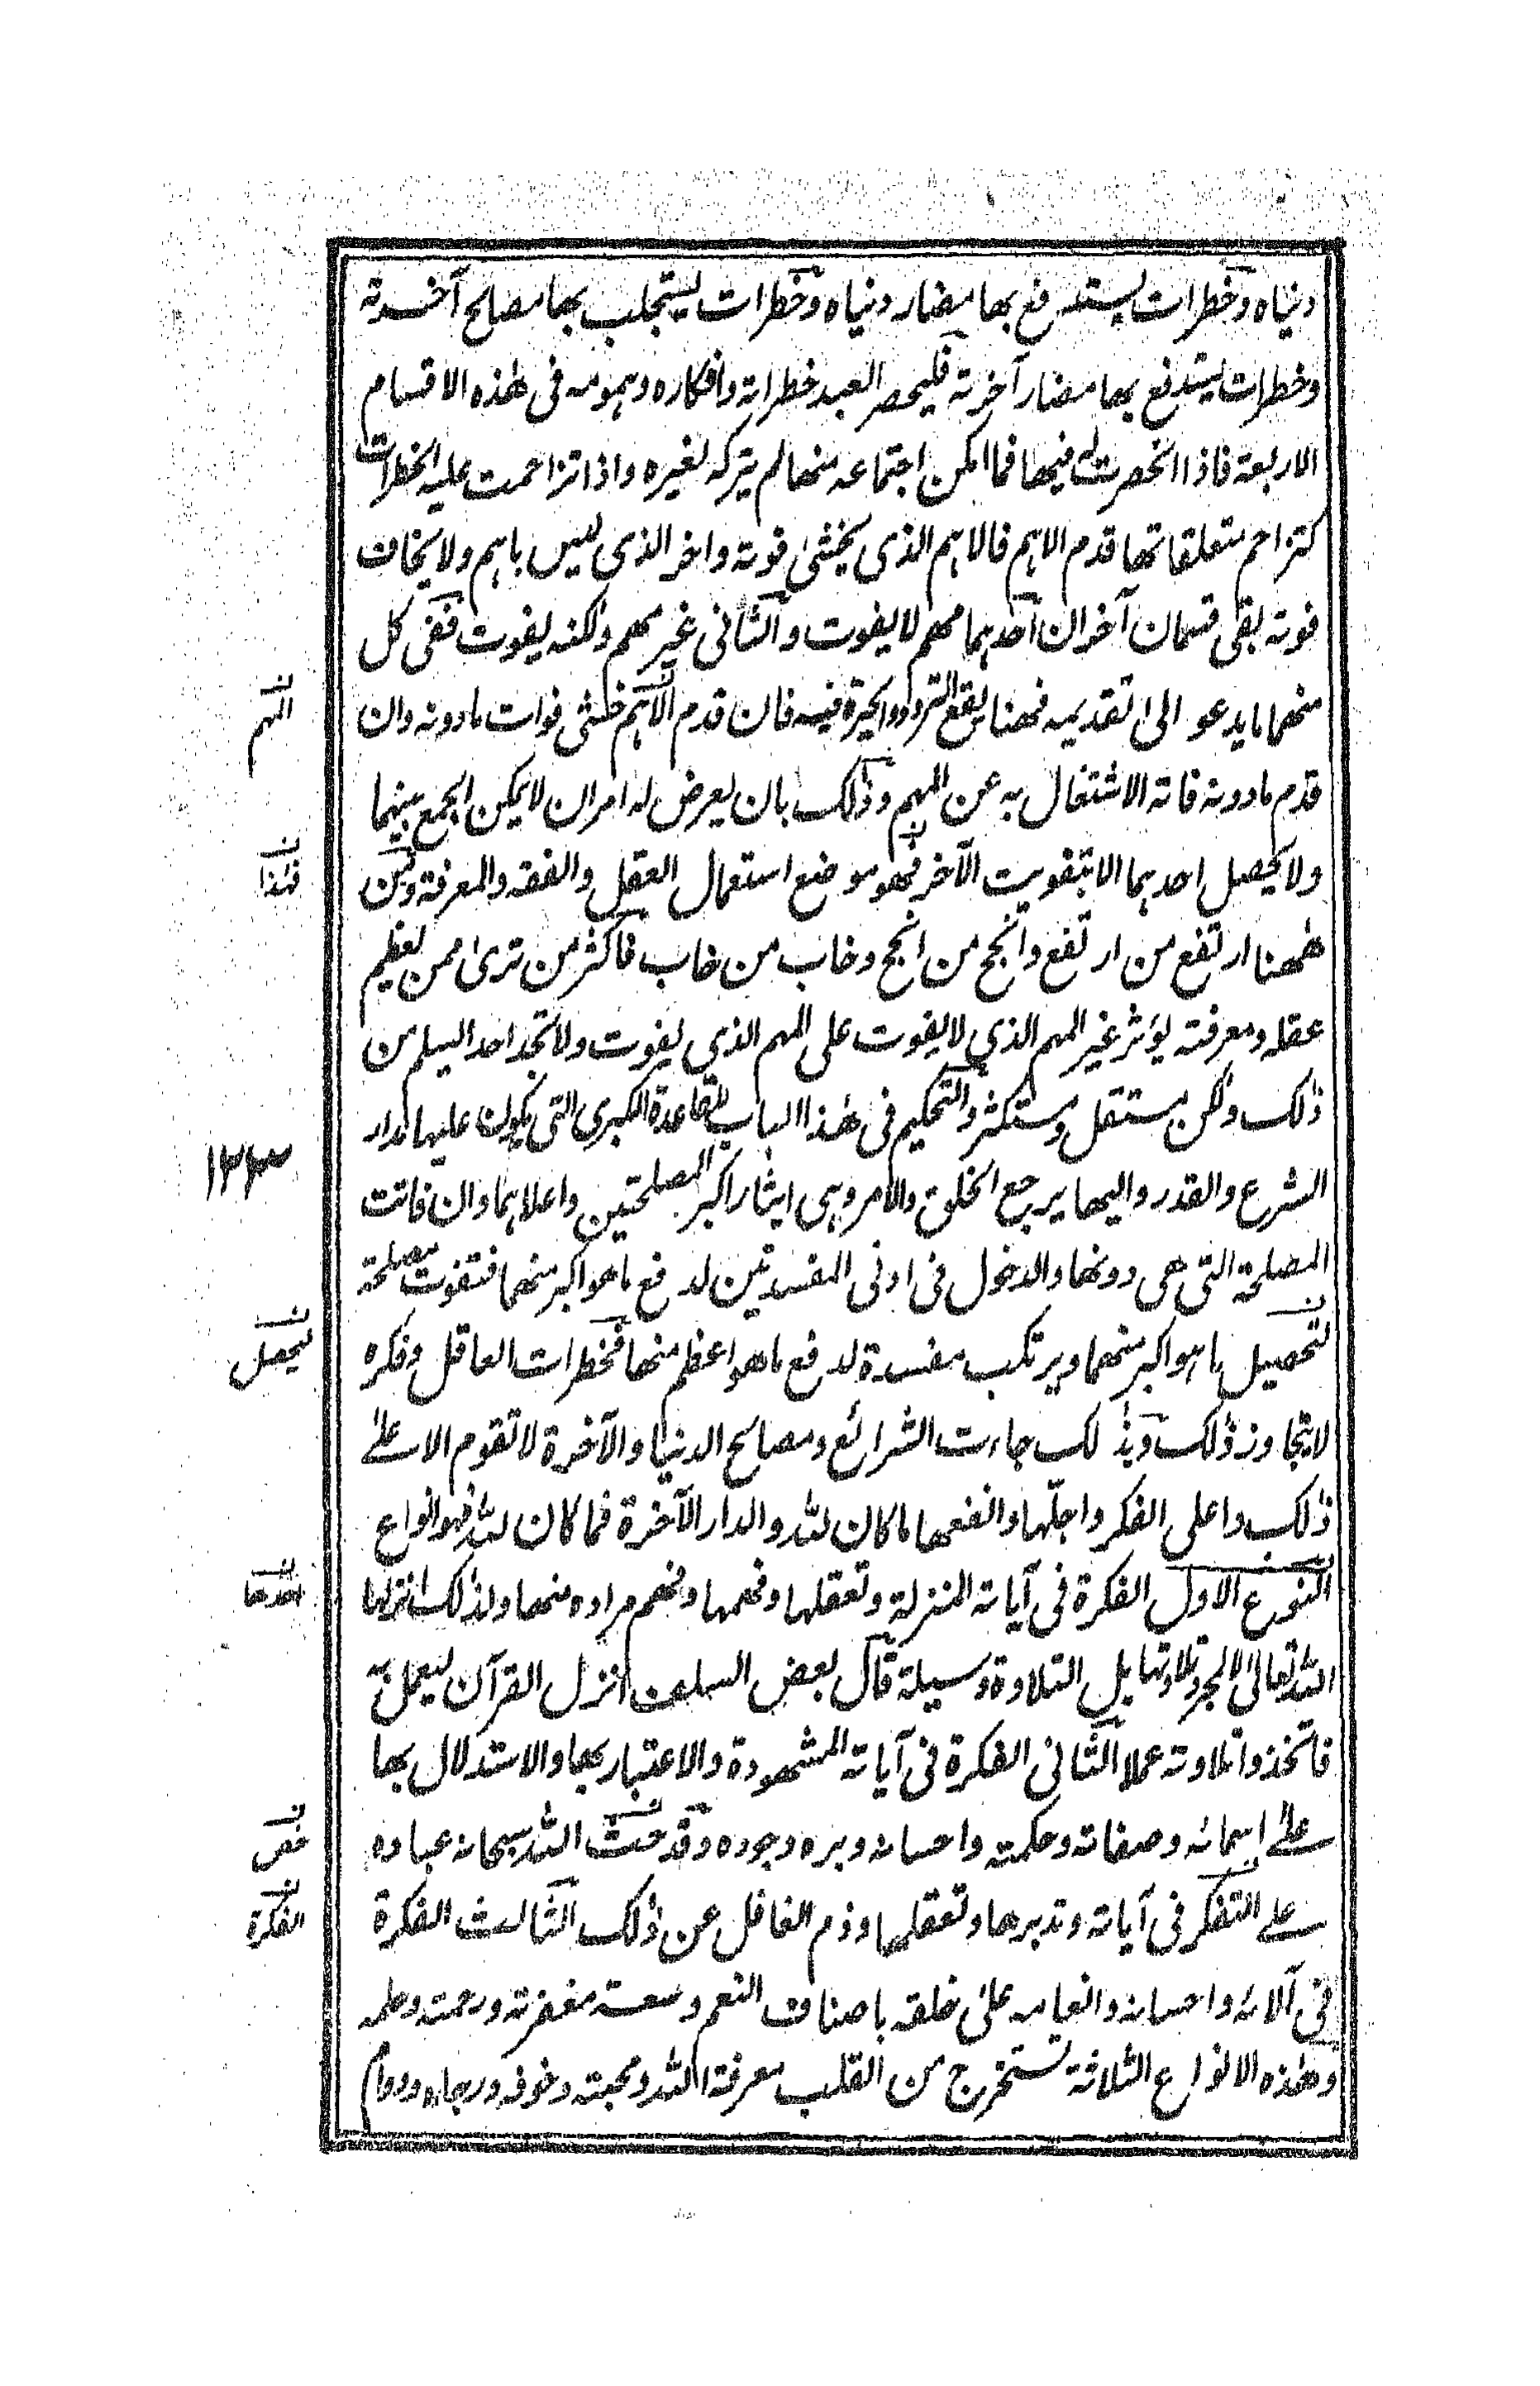 دنياه وخطرات يستدفع بها مضار دنياه وخطرات يستجلب بها مصالح آخرته
وخطرات يستدفع بها مضار آخرته فليحصر العبد خطراته وافكاره وهمومه فى هٰذه الاقسام
الاربعة فاذا انحصرت له فيها فما امكن اجتماعه منها لم يتركه لغيره واذا تزاحمت عليه الخطرات
كتزاحم متعلقاتها قدم الاهم فالاهم الذى يخشىٰ فوته واخر الذى ليس باهم ولا يخاف
فوته بقى قسمان آخران احدهما مهم لا يفوت والثانى غير مهم ولكنه يفوت ففى كل
منهما ما يدعو الىٰ تقديمه فهنا يقع التردد والحيرة فيه فان قدم الاهم خشى فوات ما دونه وان
قدم ما دونه فاته الاشتغال به عن المهم وذٰلك بان يعرض له امران لا يمكن الجمع بينهما
ولا يحصل احدهما الا بتفويت الآخر فهو موضع استعمال العقل والفقه والمعرفة ومن
هٰهنا ارتفع من ارتفع وانجح من انجح وخاب من خاب فاكثر من ترىٰ ممن يعظم
عقله ومعرفته يؤثر غير المهم الذى لا يفوت على المهم الذى يفوت ولا تجد احدا يسلم من
ذٰلك ولٰكن مستقل ومستكثر والتحكيم فى هٰذا الباب للقاعدة الكبرى التى يكون عليها مدار
الشرع والقدر واليها يرجع الخلق والامر وهى ايثار اكبر المصلحتين واعلاهما وان فاتت
المصلحة التى هى دونها والدخول فى ادنى المفسدتين لدفع ما هو اكبر منهما فتفوت مصلحة
لتحصيل ما هو اكبر منهما ويرتكب مفسدة لدفع ما هو اعظم منها فخطرات العاقل وفكره
لا يتجاوز ذٰلك وبذٰلك جاءت الشرائع ومصالح الدنيا والآخرة لا تقوم الا علىٰ
ذٰلك واعلى الفكر واجلّها وانفعها ما كان لله والدار الآخرة فما كان لله فهو انواع
النوع الاول الفكرة فى آياته المنزلة وتعقلها وفهمها وفهم مراده منها ولذٰلك انزلها
الله تعالىٰ لا لمجرد تلاوتها بل التلاوة وسيلة قال بعض السلف انزل القرآن ليعمل به
فاتخذوا تلاوته عملا الثانى الفكرة فى آياته المشهودة والاعتبار بها والاستدلال بها
علىٰ اسمائه وصفاته وحكمته واحسانه وبره وجوده وقد حث الله سبحانه عباده
على التفكر فى آياته وتدبرها وتعقلها وذم الغافل عن ذٰلك الثالث الفكرة
فى آلائه واحسانه وانعامه علىٰ خلقه باصناف النعم وسعة مغفرته ورحمته وحلمه
وهٰذه الانواع الثلاثة تستخرج من القلب معرفة الله ومحبته وخوفه ورجاءه ودوام
ن
المهم
ن
فهٰذا
١٢٣
ن
ليحصل
ن
احدها
ن
حض
ن
الفكرة